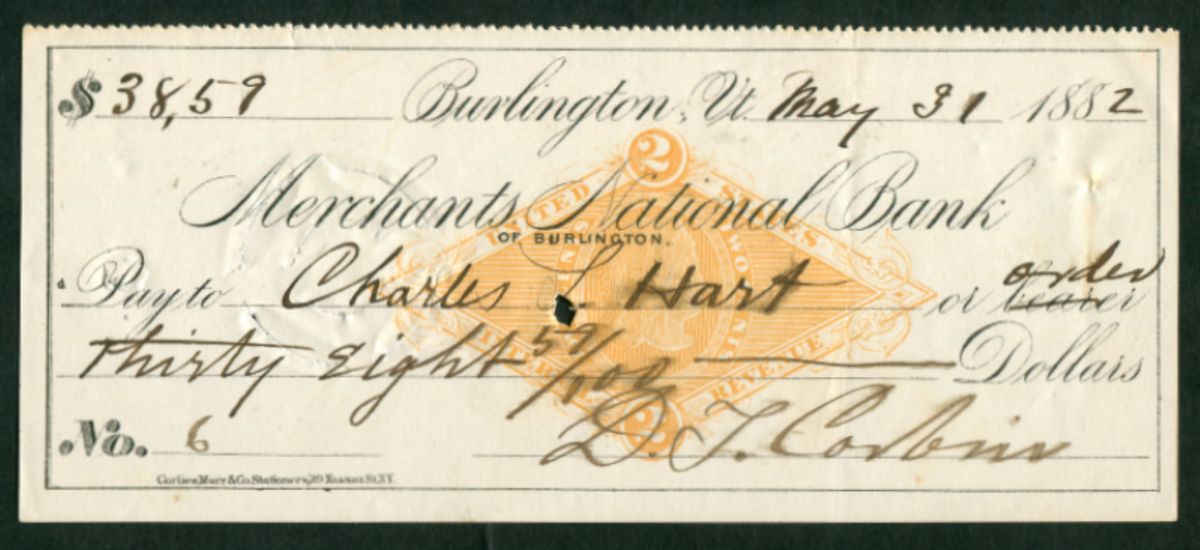 $ 38,59 Burlington, Vt. May 31 1882
2
UNITED STATES
Merchants National Bank
OF BURLINGTON.
order
Pay to Charles L. Hart or bearer
thirty Eight 59/100 Dollars
INTERNAL REVENUE
2
No. 6 D. T. Corbin
Corlies, Macy & Co. Stationers, 39 Nassau St. N.Y.